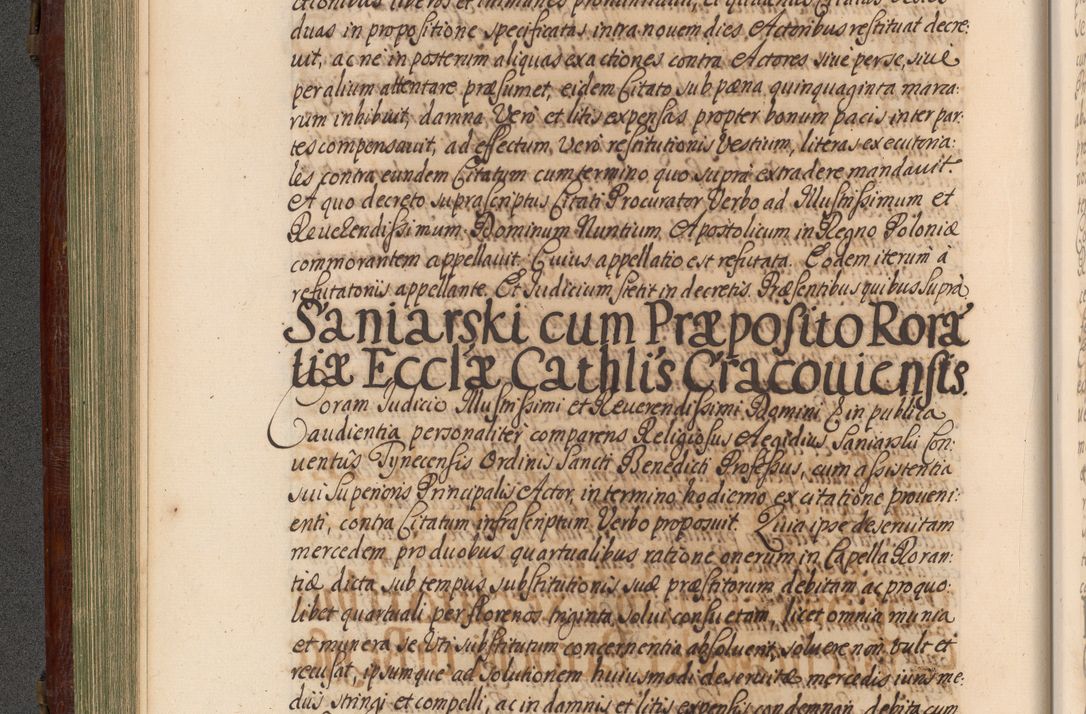 duas in propositione specificatas intra nouem dies Actoribus restituat decre:
uit, ac ne in posterum aliquas exactiones contra Actores siue per se, siue
per alium attentare præsumet, eidem Citato sub pœna quinquaginta marca:
rum inhibuit, damna Vero et litis expensas propter bonum pacis inter par:
tes compensauit, ad effectum Vero restitutionis Vestium, literas executoria:
les contra eundem Citatum cum termino quo supra extradere mandauit.
A quo decreto suprascriptus Citati Procurator Verbo ad Illustrissimum et
Reuerendissimum Dominum Nuntium Apostolicum in Regno Poloniæ
commorantem appellauit. Cuius appellatio est refutata. Eodem iterum à
refutatoris appellante. Et Iudicium stetit in decretis. Præsentibus quibus supra
Saniarski cum Præposito Rora
tiæ Ecclæ Cathlis Cracouiensis.
Coram Iudicio Illustrissimi et Reuerendissimi Domini E in publica
audientia personaliter comparens Religiosus Aegidius Saniarski Con:
uentus Tynecensis Ordinis Sancti Benedicti Professus, cum assistentia
sui Superioris Principalis Actor, in termino hodierno ex citatione proueni:
enti, contra Citatum infrascriptum Verbo proposuit. Quia ipse deseruitam
mercedem pro duobus quartualibus ratione onerum in Capella Roran:
tiæ dicta sub tempus substitutionis suæ præstitorum debitam ac pro quo:
libet quartuali per florenos triginta solui consuetam, licet omnia munia
et munera se Vti substitutum concernentia absoluent, soluere non vult et
recusat, ipsumque ad solutionem huiusmodi deseruitæ mercedis iuris me:
dijs stringi et compelli, ac in damnis et litis expensis condemnari debita cum